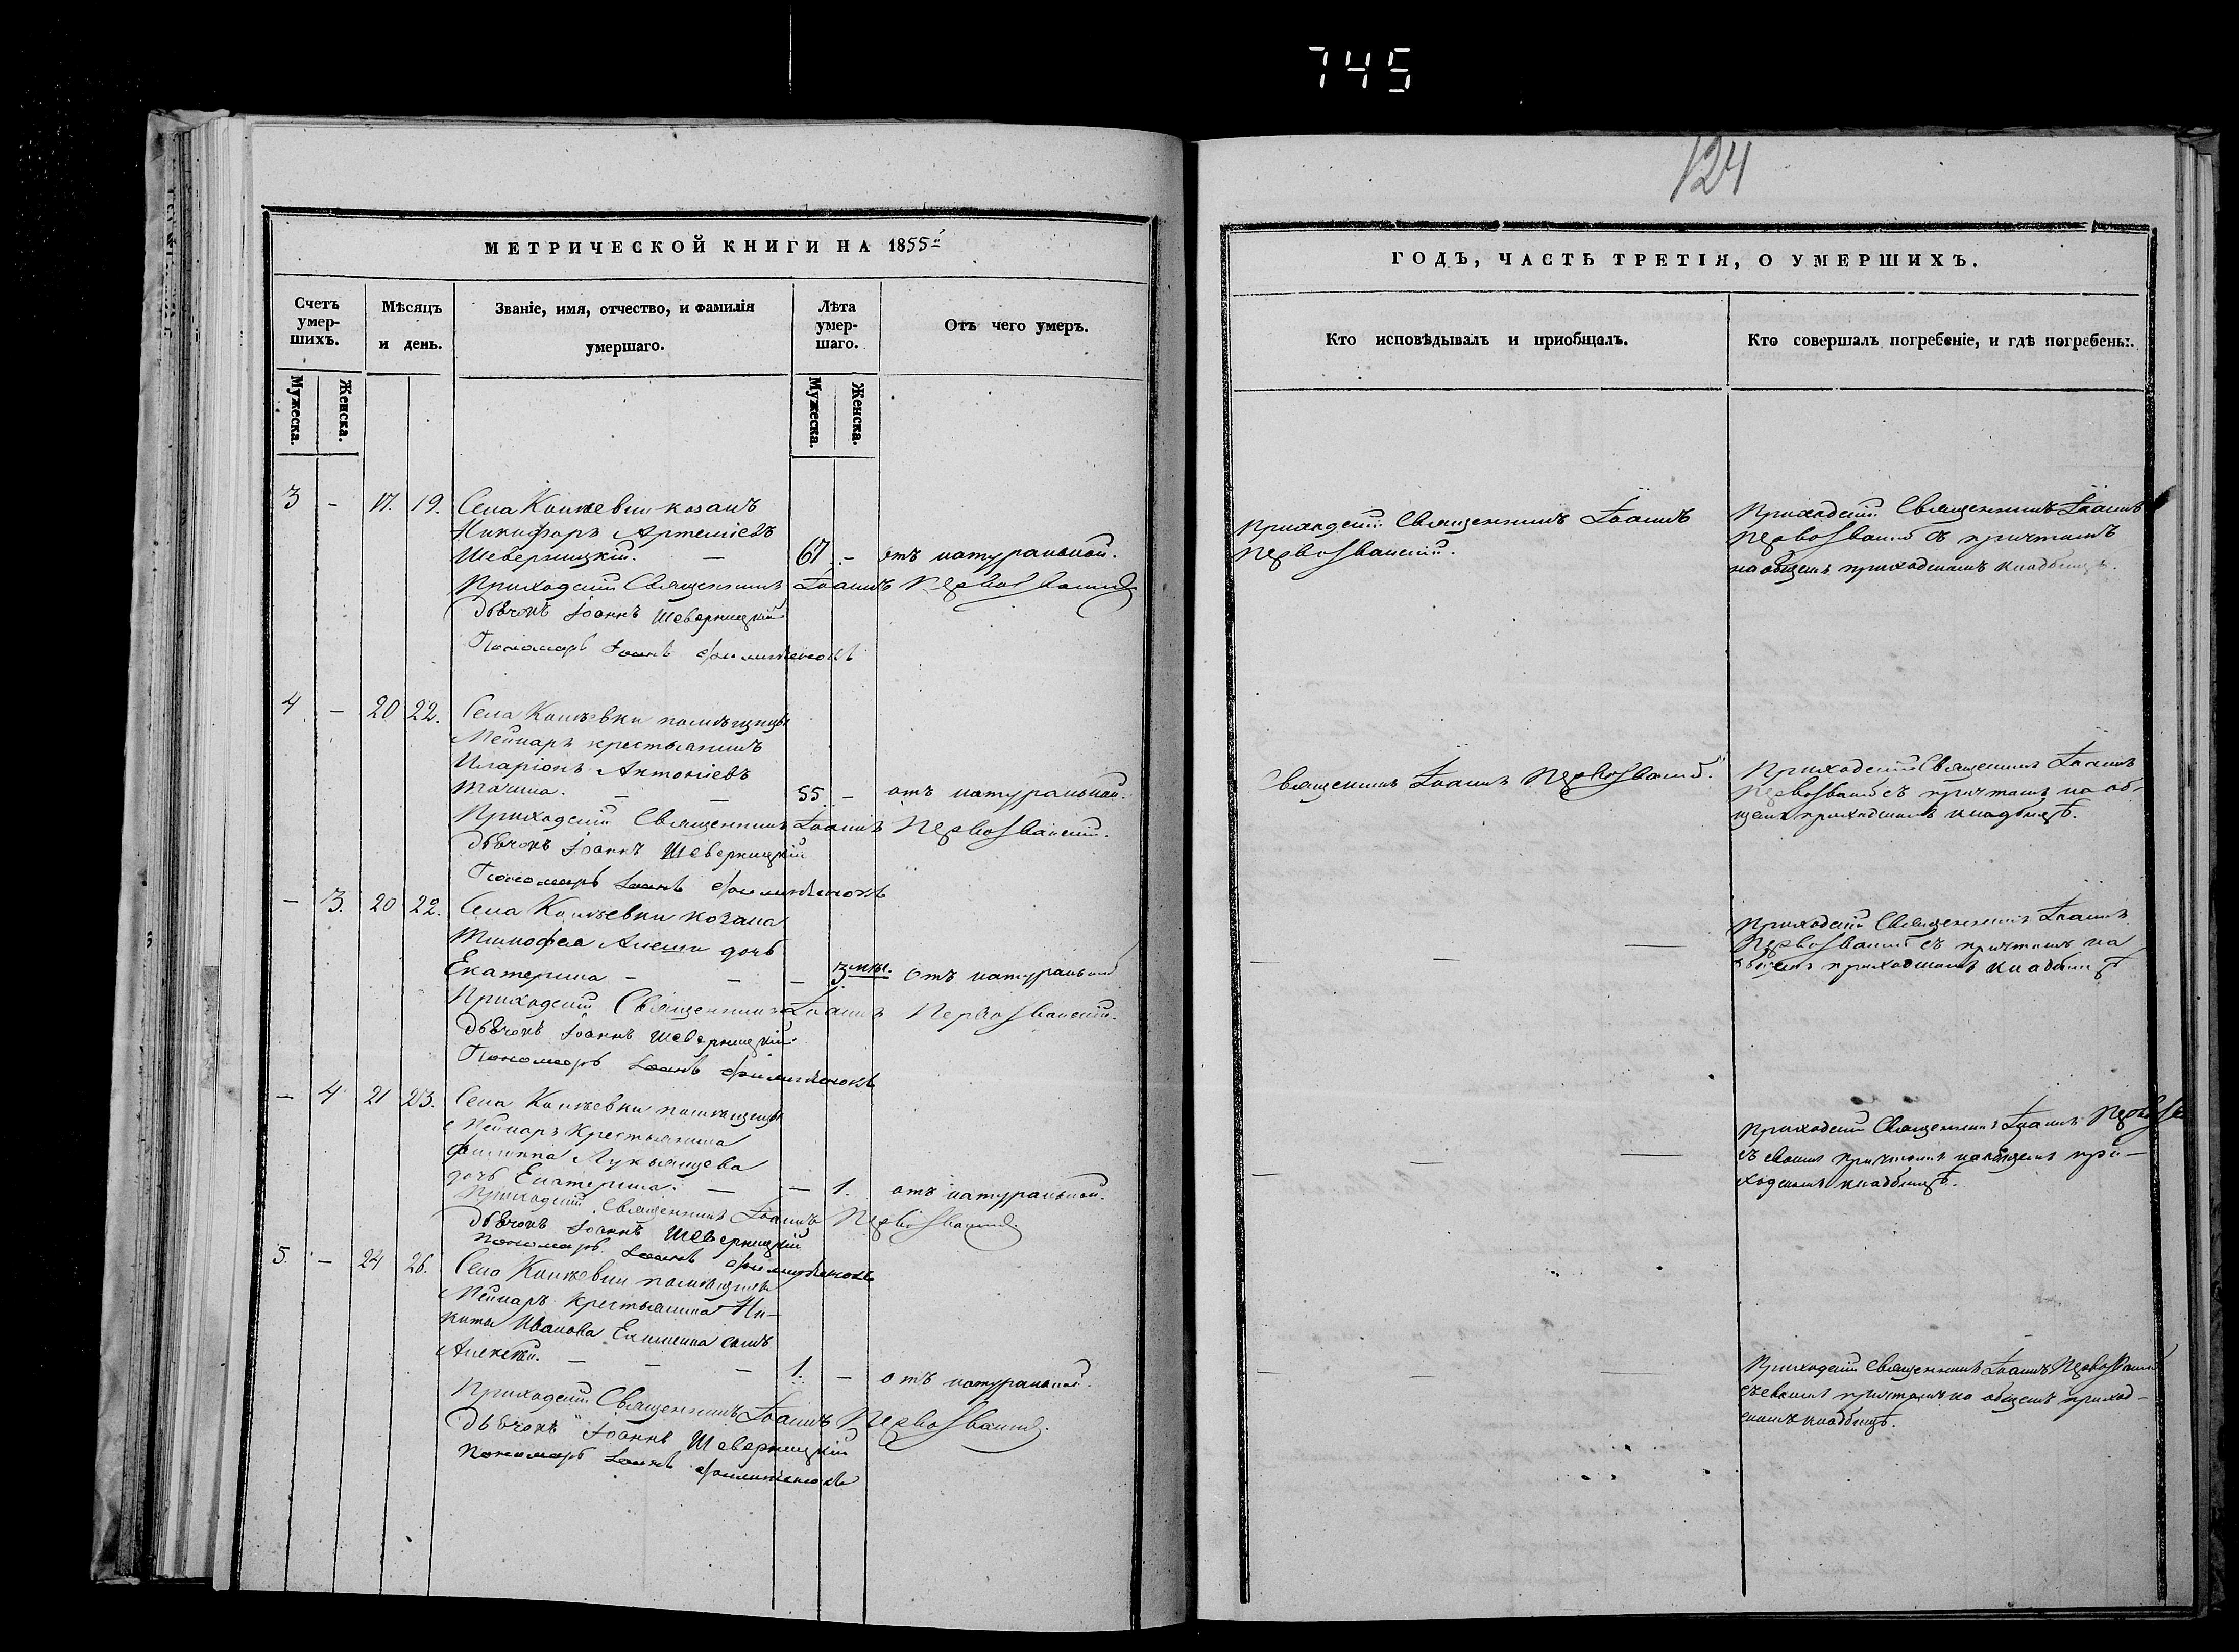 745
124
МЕТРИЧЕСКОЙ КНИГИ НА 1855й
Счетъ умер-шихъ.
Мѣсяцъ и день.
Званіе, имя, отчество, и фамилія умершаго.
Лѣта умер-шаго.
Отъ чего умеръ.
Мужеска.
Женска.
Мужеска.
Женска.
3 - 17. 19. Села козакъ
Никифоръ Артеміевъ
Шеверницкій. — 67 - отъ натуральной.
Приходскій Священникъ Іоаннъ Первозванскій
Дьячокъ Іоаннъ Шеверницкій
Пономарь Іоаннъ
4 - 20 22. Села помѣщицы
крестьянинъ
Иларіонъ Антоніевъ
— — 55. - отъ натуральной.
Приходскій Священникъ Іоаннъ Первозванскій.
Дьячокъ Іоаннъ Шеверницкій
Пономарь Іоаннъ
- 3. 20 22. Села козака
Тимофея дочь
Екатерина — — - 3 отъ натуральной
Приходскій Священникъ Іоаннъ Первозванскій.
Дьячокъ Іоаннъ Шеверницкій
Пономарь Іоаннъ
- 4 21 23. Села помѣщицы
крестьянина
Филиппа
дочь Екатерина. — - 1. отъ натуральной.
Приходскій Священникъ Іоаннъ Первозванскій
Дьячокъ Іоаннъ Шеверницкій
Пономарь Іоаннъ
5. - 24 26. Села помѣщицы
крестьянина Ни-
киты Иванова сынъ
Алексѣй. — — - 1. - отъ натуральной.
Приходскій Священникъ Іоаннъ Первозванскій.
Дьячокъ Іоаннъ Шеверницкій
Пономарь Іоаннъ
ГОДЪ, ЧАСТЬ ТРЕТІЯ, О УМЕРШИХЪ.
Кто исповѣдывалъ и приобщалъ.
Кто совершалъ погребеніе, и гдѣ погребены.
Приходскій Священникъ Іоаннъ
Первозванскій.
Приходскій Священникъ Іоаннъ
Первозванскій съ причтомъ
на общемъ приходскомъ кладбищѣ.
Священникъ Іоаннъ Первозванскій.
Приходскій Священникъ Іоаннъ
Первозванскій съ причтомъ на об-
щемъ приходскомъ кладбищѣ.
Приходскій Священникъ Іоаннъ
Первозванскій съ причтомъ на
общемъ приходскомъ кладбищѣ
Приходскій Священникъ Іоаннъ
съ своимъ причтомъ на общемъ при-
ходскомъ кладбищѣ.
Приходскій Священникъ Іоаннъ Первозванскій
съ своимъ причтомъ на общемъ приход-
скомъ кладбищѣ.